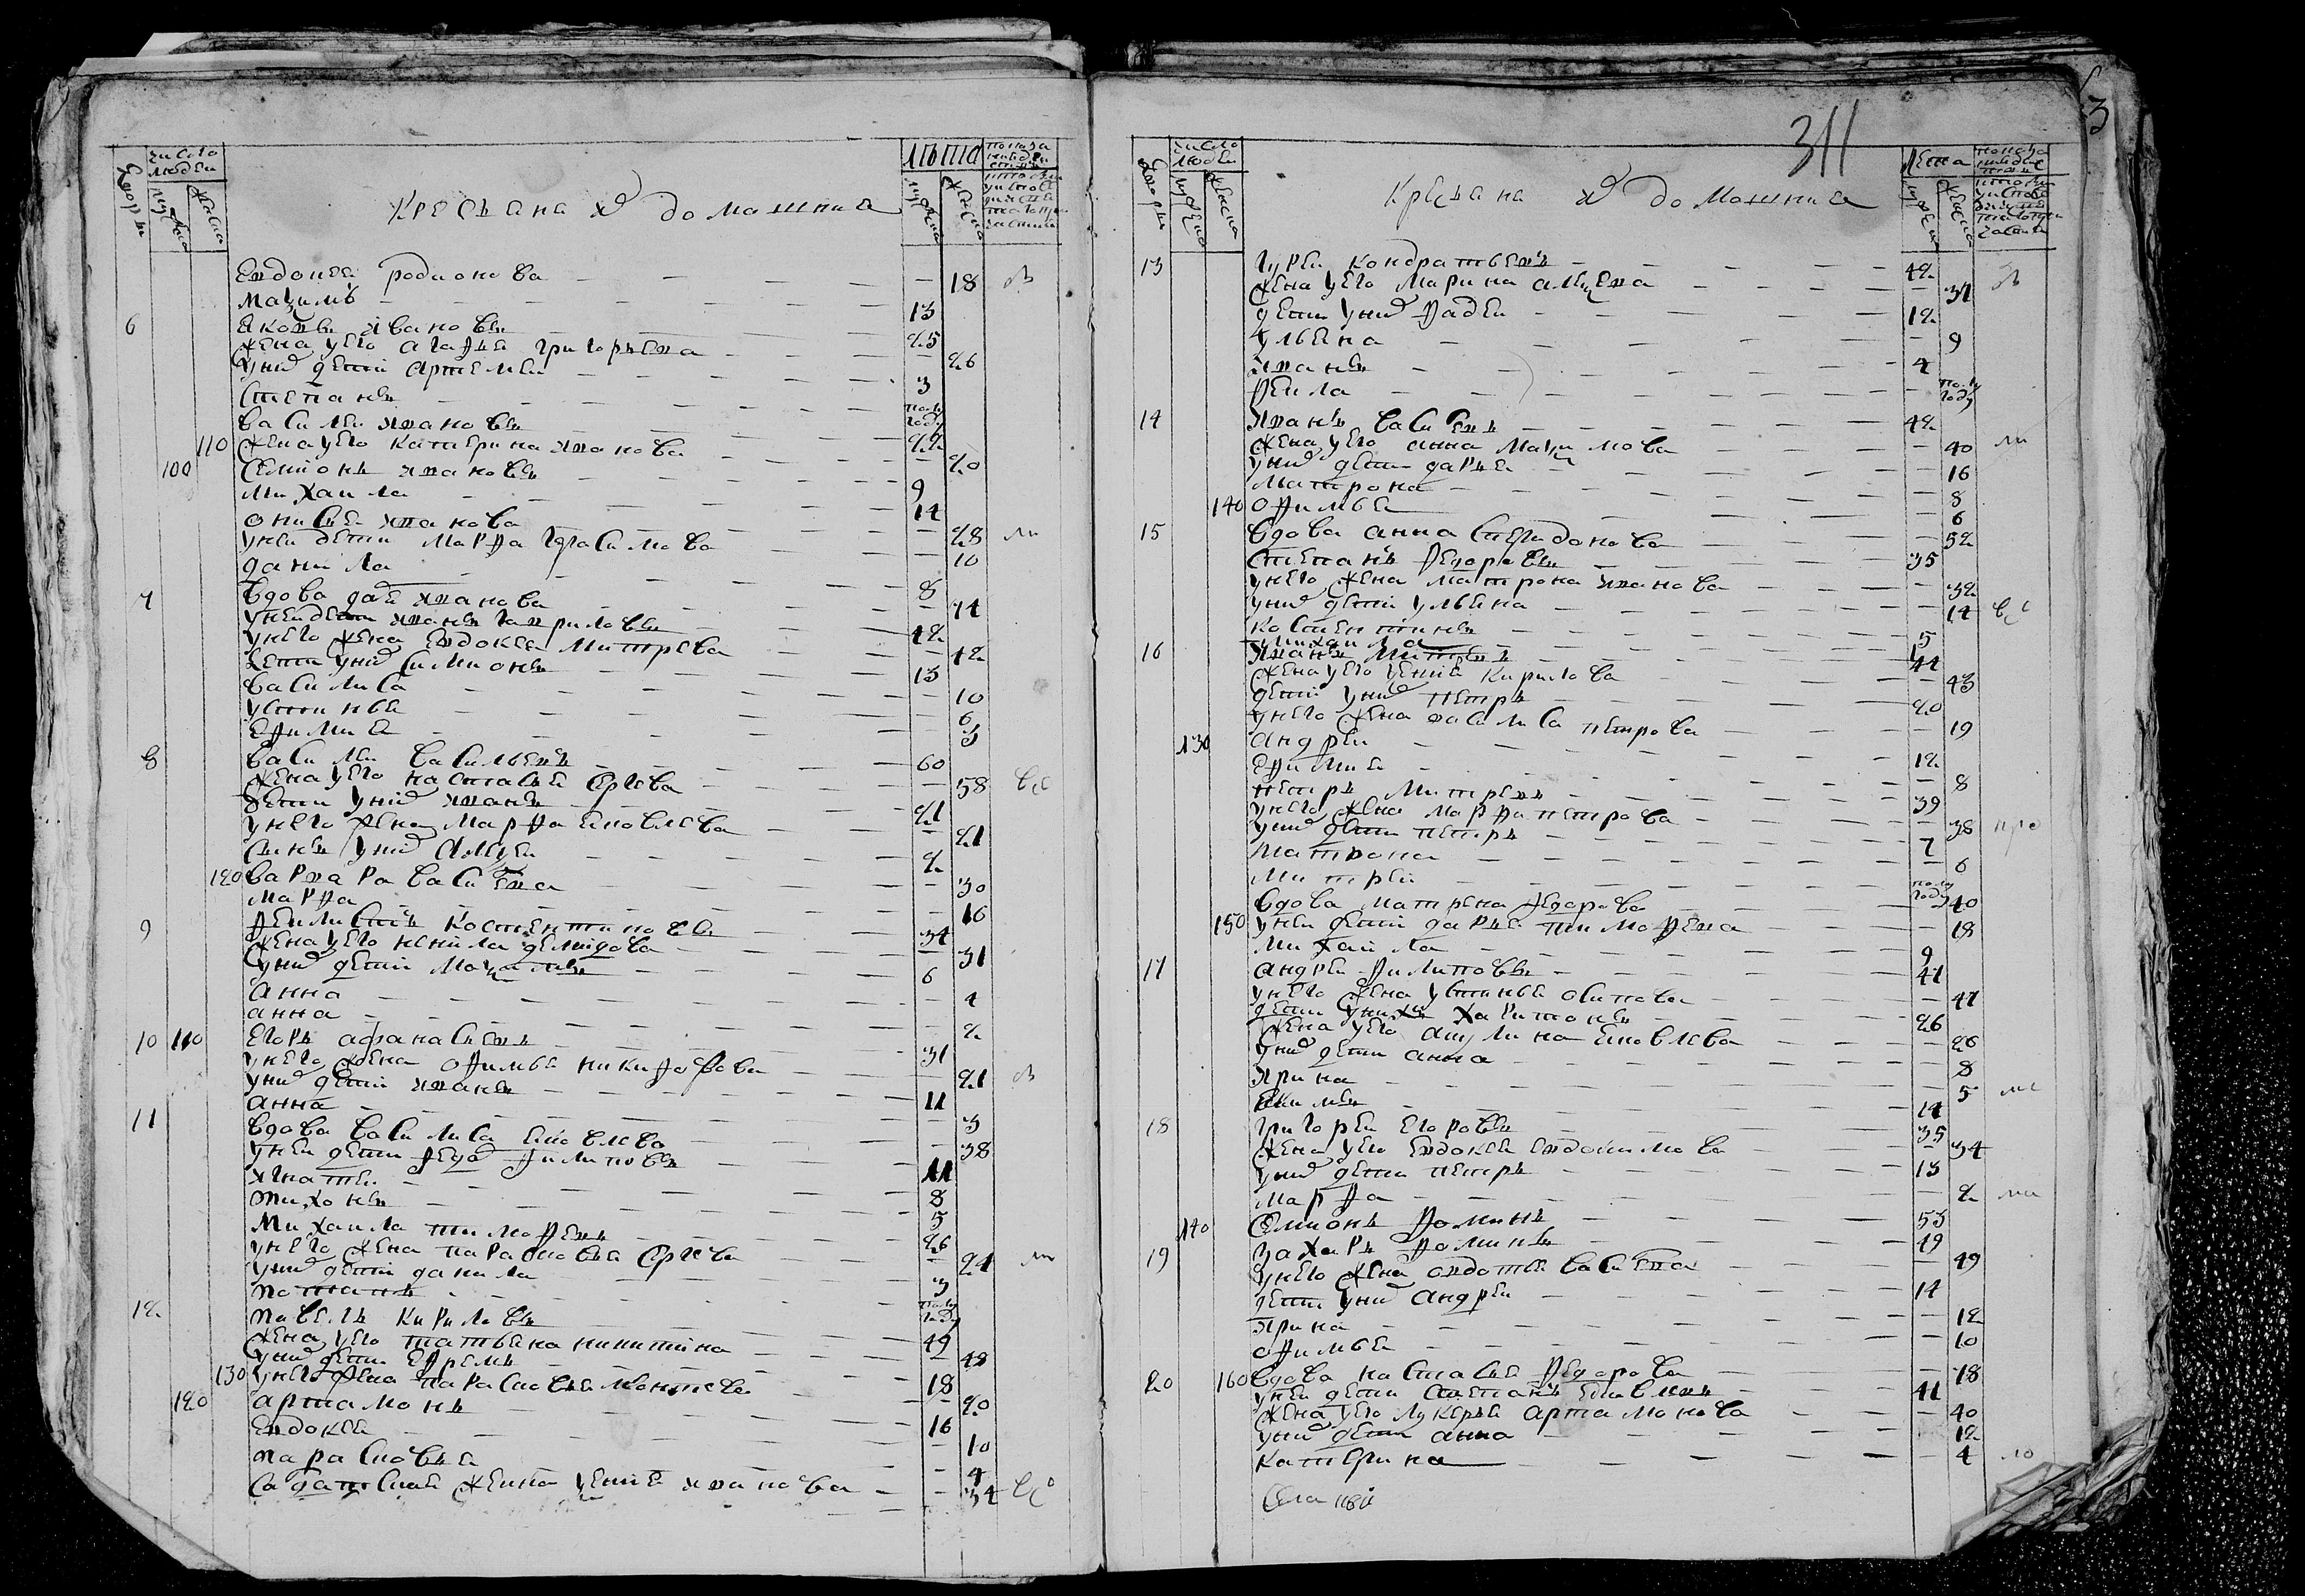 число людей
лѣта
Кресьяна и домашния
Евдокея родионова — 18
Мазимъ — 13
6 Яковъ Ивановъ — 25
жена уего агафья григорьева — 26
уних дети артемеи — 3
степанъ — полу году
василеи Ивановъ — 22
110 жена уего катерина Иванова — 20
100 семионъ Ивановъ — 9
михаила — 14
онисья Иванова — 28
унеи дети марфа герасимова — 10
данила — 8
7 вдова дарья Иванова — 74
унеи дети Иванъ гавриловъ — 42
унего жена Евдокея митрева — 42
дети уних симионъ — 13
василиса — 10
устинья — 6
Ефимия — 3
8 василеи васильевъ — 60
жена уего настасья сргева — 58
дети уних Иванъ — 21
унего жена марфа яковлева — 21
синъ уних алеѯеи — 2
120 варвара васиева — 30
марфа — 16
9 феилистъ костентиновъ — 34
жена уего ненила демидова — 31
уних дети маѯимъ — 6
анна — 4
анна — 2
10 110 егоръ афанасьевъ — 31
унего жена офимья никифорова — 21
уних дети Иванъ — 11
анна — 3
11 вдова василиса яковлева — 38
унеи дети федо филиповъ — 11
игнатеи — 8
тихонъ — 5
михаила тимофеевъ — 26
унего жена парасковья сргева — 24
уних дети данила — 3
потапъ — полу году
12 павелъ кириловъ — 49
жена уего татьяна никитина — 48
уних дети ефремъ — 18
130 унего жена парасковья — 20
120 артамонъ — 16
евдокея — 10
парасковья — 4
салдатская женка ѯения Иванова — 34
311
3
число людей
лета
Кресьяна и домашния
13 гуреи кондратьевъ — 42
жена уего марина алеѯеева — 31
дети уних фадеи — 12
ульяна — 9
Иванъ — 4
феила — полу году
14 Иванъ васиевъ — 42
жена уего анна маѯимова — 40
уних дети дарья — 16
матрона — 8
140 офимья — 6
15 вдова анна спиридонова — 52
степанъ федоровъ — 35
унего жена матрона Иванова — 32
уних дети ульяна — 14
костентинъ — 5
михаила
16 Иванъ митревъ — 44
жена уего ѯения кирилова — 43
дети уних петръ — 20
унего жена василиса петрова — 19
130 андреи — 12
ефимия — 8
петръ митревъ — 39
унего жена марфа петрова — 38
уних дети петръ — 7
матрона — 6
митреи — полу году
вдова матрена федорова — 40
150 унеи дети дарья тимофеева — 18
михаила — 9
17 андреи филиповъ — 47
унего жена устинья осипова — 47
дети уних харитонъ — 26
жена уего акулина яковлева — 26
уних дети анна — 8
Ирина — 5
якимъ — 14
18 григореи егоровъ — 35
жена уего евдокея евдокимова — 34
уних дети петръ — 13
марфа — 2
140 семионъ фоминъ — 53
19 захаръ фоминъ — 49
унего жена авдотья васиева — 49
дети уних андреи — 14
Ирина — 12
офимья — 10
20 160 вдова настасья федорова — 78
унеи дети степанъ — 41
жена уего лукерья артамонова — 40
уних дети анна — 12
катерина — 4